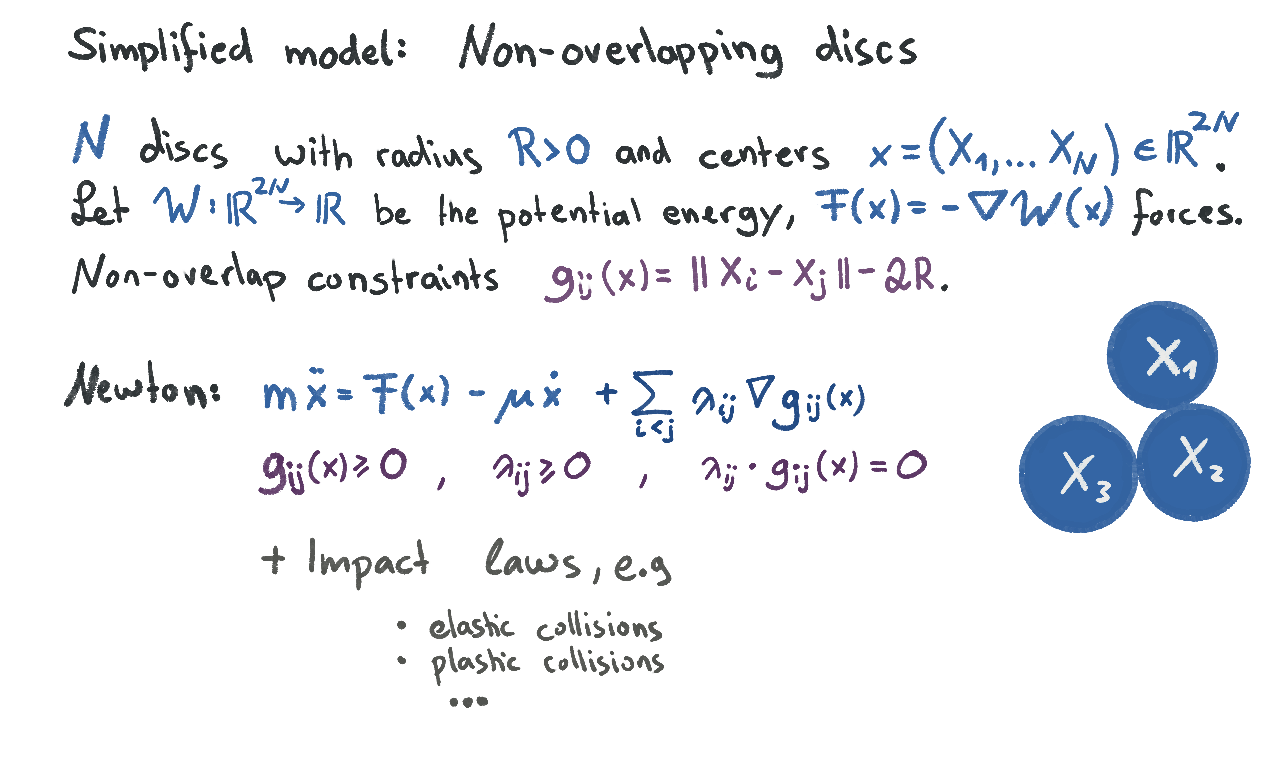 Simplified model: Non-overlapping discs
N discs with radius R>0 and centers x=(X₁,... X_N) ∈ ℝ²ᴺ.
Let W: ℝ²ᴺ→ ℝ be the potential energy, F(x) = - ∇W(x) forces.
Non-overlap constraints g_ij(x) = ‖X_i - X_j‖ - 2R.
Newton: mẍ = F(x) - μẋ + ∑_{i<j} λ_ij ∇g_ij(x)
g_ij(x) ≥ 0 , λ_ij ≥ 0 , λ_ij · g_ij(x) = 0
+ Impact laws, e.g
• elastic collisions
• plastic collisions
...
X₁
X₃ X₂